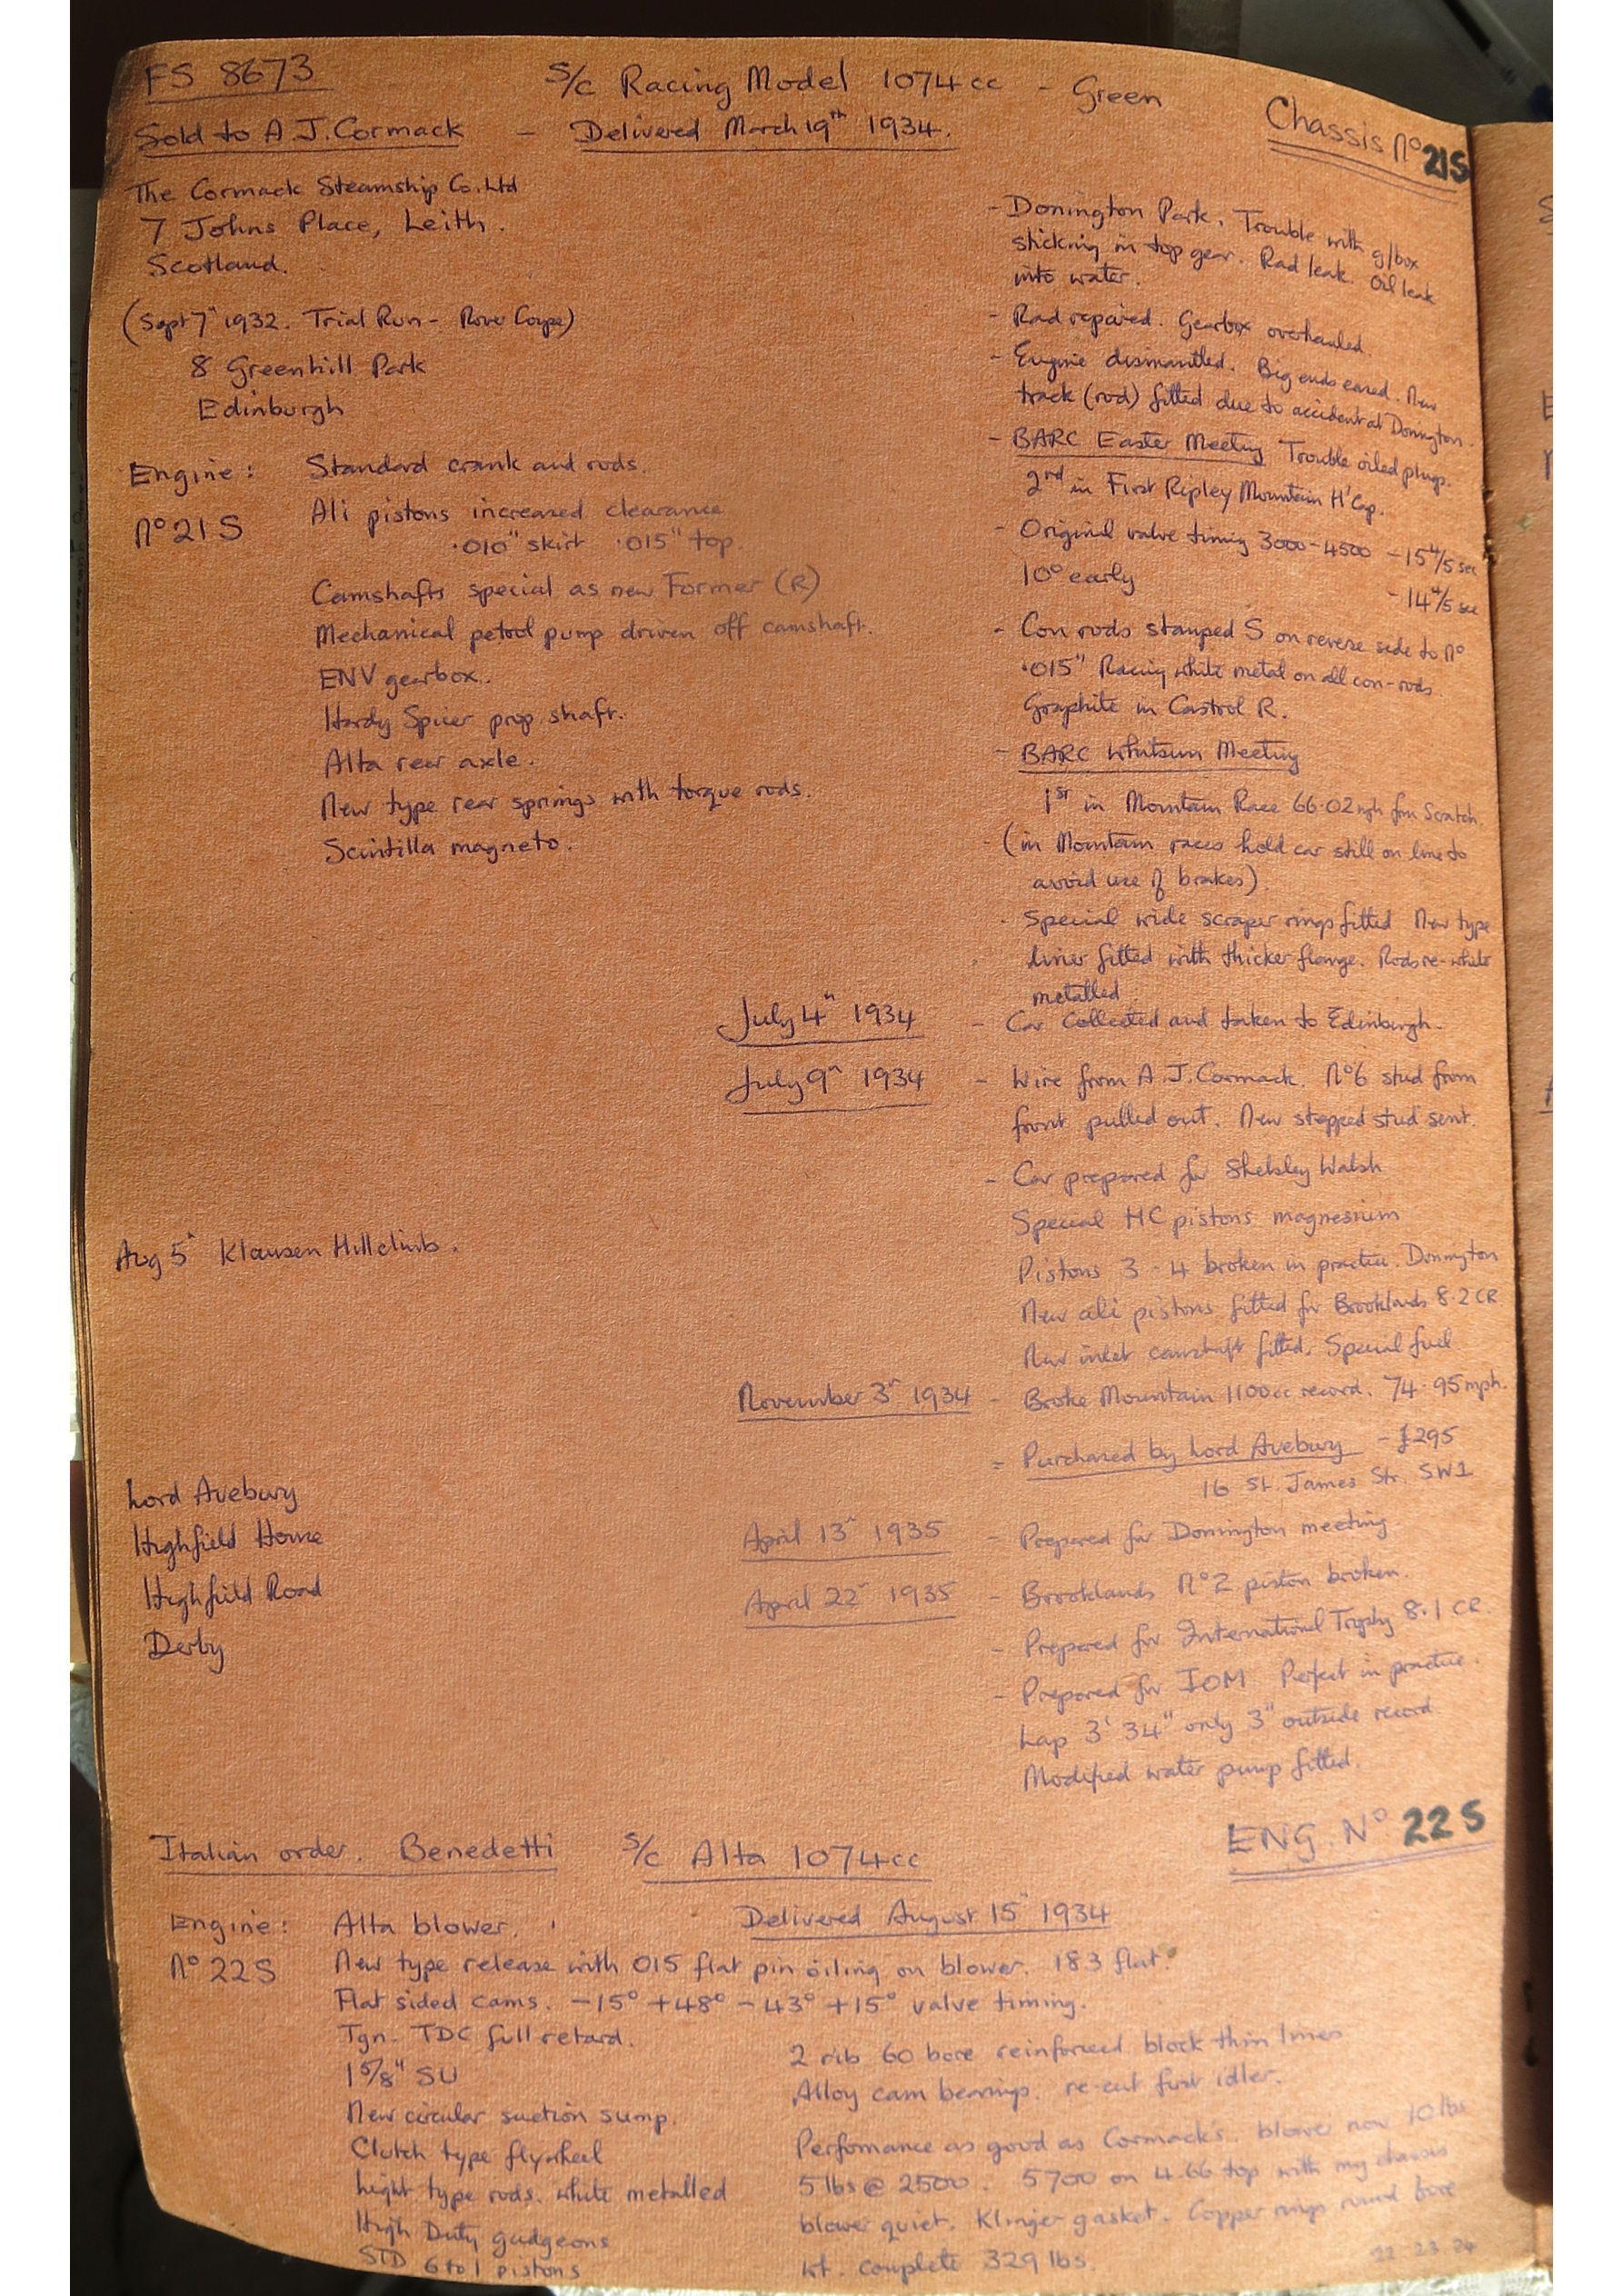 FS 8673
S/c Racing Model 1074cc - Green
Chassis No 21S
Sold to A J. Cormack - Delivered March 19th 1934.
The Cormack Steamship Co. Ltd
7 Johns Place, Leith.
Scotland.
(Sept 7th 1932. Trial Run - Rover Coupe)
8 Greenhill Park
Edinburgh
Engine: Standard crank and rods.
No 21S
Ali pistons increased clearance
.010" skirt .015" top.
Camshafts special as new Former (R)
Mechanical petrol pump driven off camshaft.
ENV gearbox.
Hardy Spicer prop shaft.
Alta rear axle.
New type rear springs with torque rods.
Scintilla magneto.
- Donington Park. Trouble with g/box
sticking in top gear. Rad leak. Oil leak
into water.
- Rad repaired. Gearbox overhauled.
- Engine dismantled. Big ends eared. New
track (rod) fitted due to accident at Donington.
- BARC Easter Meeting Trouble oiled plugs.
2nd in First Ripley Mountain H'Cap.
- Original valve timing 3000-4500 - 15 4/5 sec
10° early - 14 4/5 sec
- Con rods stamped S on reverse side to No
.015" Racing white metal on all con-rods.
Graphite in Castrol R.
- BARC Whitsun Meeting
1st in Mountain Race 66.02 mph from Scratch.
- (in Mountain races hold car still on line to
avoid use of brakes)
- Special wide scraper rings fitted New type
liner fitted with thicker flange. Rods re-white
metalled
July 4th 1934 - Car collected and taken to Edinburgh.
July 9th 1934 - Wire from A. J. Cormack. No 6 stud from
front pulled out. New stepped stud sent.
- Car prepared for Shelsley Walsh
Special HC pistons magnesium
Aug 5th Klausen Hillclimb.
Pistons 3 - 4 broken in practice. Donington
New ali pistons fitted for Brooklands 8.2 CR
New inlet camshaft fitted. Special fuel
November 3rd 1934 - Broke Mountain 1100cc record. 74.95 mph.
- Purchased by Lord Avebury - £295
16 St. James Str. SW1
Lord Avebury
Highfield House
Highfield Road
Derby
April 13th 1935 - Prepared for Donnington meeting
April 22nd 1935 - Brooklands No 2 piston broken.
- Prepared for International Trophy 8.1 CR.
- Prepared for IOM Perfect in practice.
Lap 3' 34" only 3" outside record
Modified water pump fitted.
Italian order. Benedetti S/c Alta 1074cc
ENG. No 22S
Engine: Alta blower.
Delivered August 15th 1934
No 22S
New type release with 015 flat pin oiling on blower. 183 flat.
Flat sided cams. -15° +48° -43° +15° valve timing.
Ign. TDC full retard.
1 5/8" SU
New circular suction sump.
Clutch type flywheel
Light type rods. white metalled
High Duty gudgeons
STD 6 to 1 pistons
2 rib 60 bore reinforced block thin liners
Alloy cam bearings. re-cut first idler.
Perfomance as good as Cormack's. blower now 10 lbs
5 lbs @ 2500. 5700 on 4.66 top with my chassis
blower quiet. Klinger gasket. Copper rings round bore
Wt. complete 329 lbs.
22 23 24